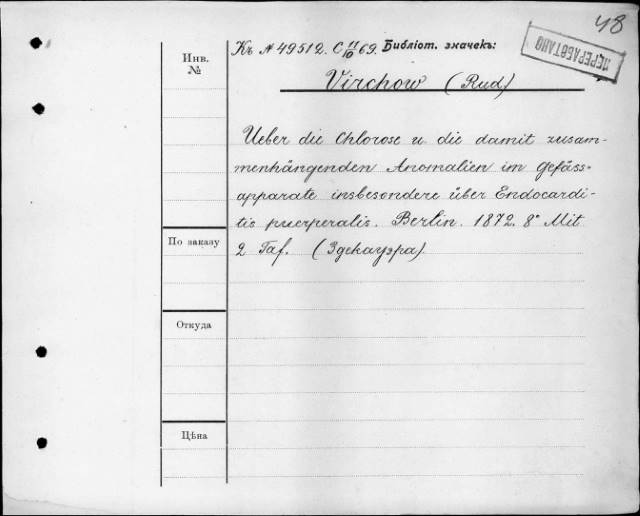 48
Къ № 49512. C 11/10 69. Библіот. значекъ:
ПЕРЕРАБОТАНО
Инв. №
Virchow (Rud)
Ueber die Chlorose u. die damit zusam-
menhängenden Anomalien im Gefäss-
apparate insbesondere über Endocardi-
tis puerperalis. Berlin. 1872. 8° Mit
2 Taf. (Эдекауэра).
По заказу
Откуда
Цѣна